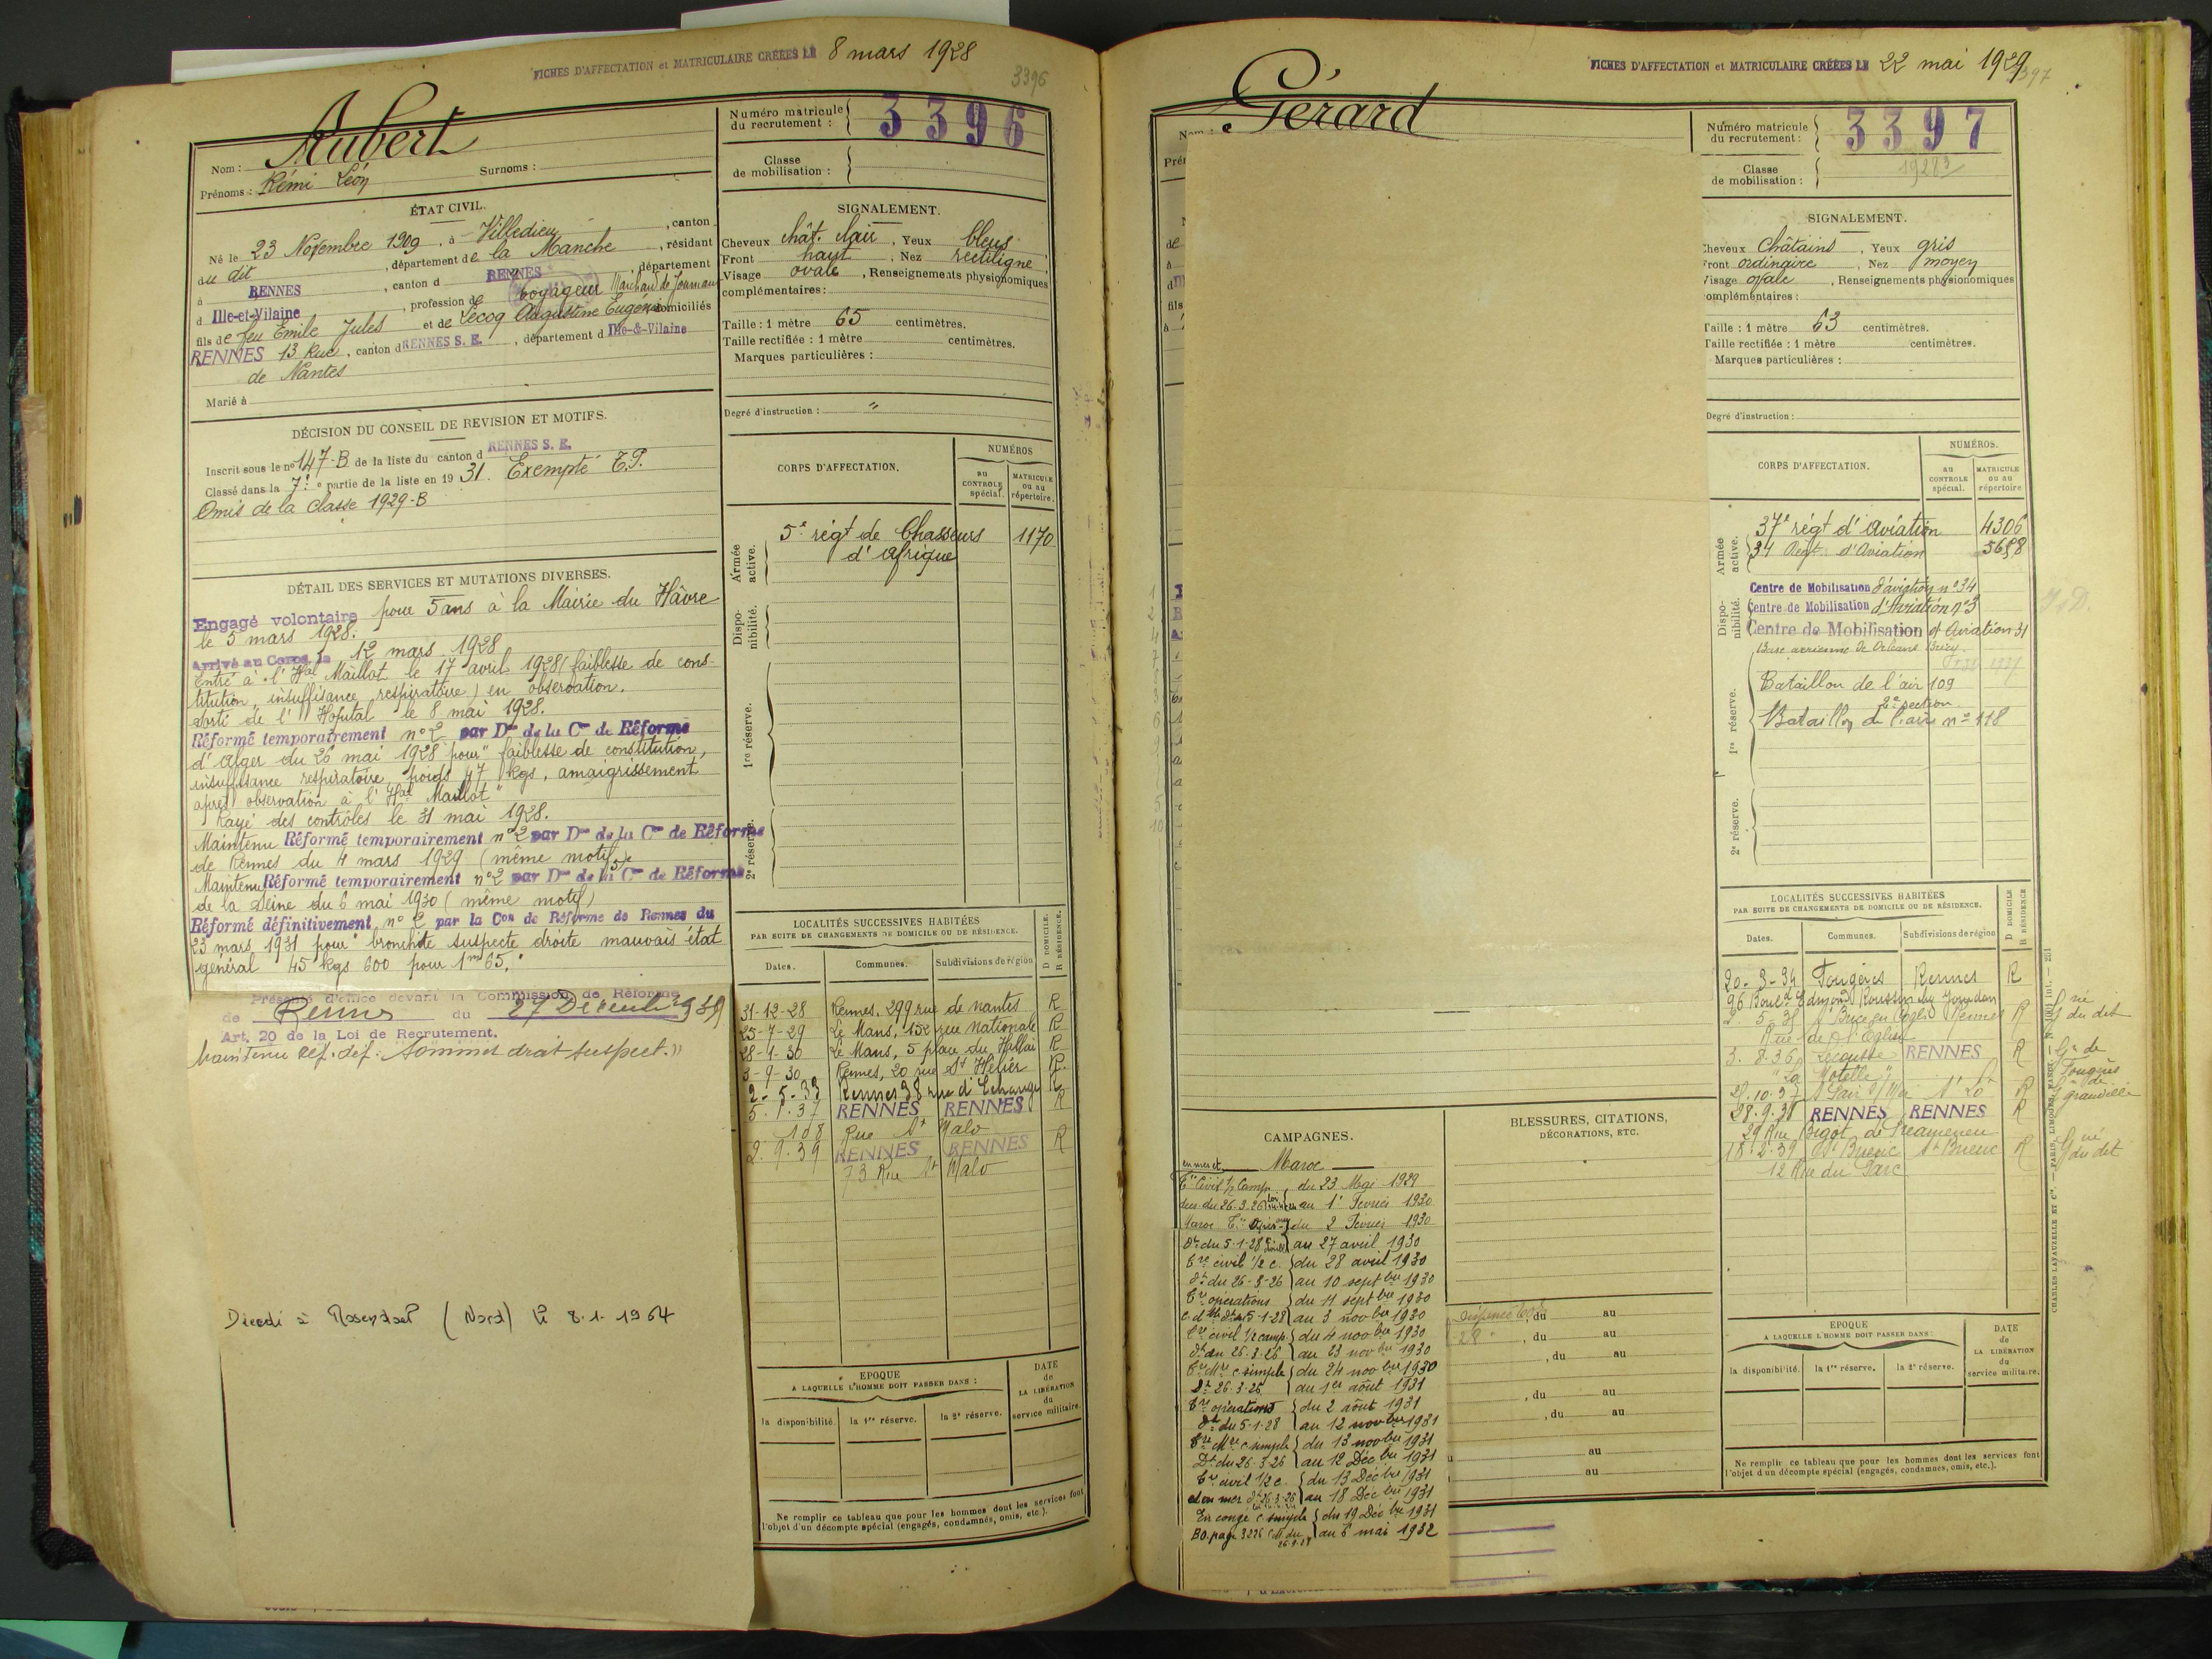 FICHES D'AFFECTATION et MATRICULAIRE CRÉÉES LE 8 mars 1928
3396
Nom : Aubert
Prénoms : Rémi Léon Surnoms :
Numéro matricule du recrutement : 3396
Classe de mobilisation :
ÉTAT CIVIL.
Né le 23 Novembre 1909, à Villedieu, canton
du dit, département de la Manche, résidant
à RENNES, canton d RENNES, département
d Ille-et-Vilaine, profession de voyageur Marchand de Journaux
fils de feu Emile Jules et de Lecoq Augustine Eugénie domiciliés
RENNES 13 Rue, canton d RENNES S. E., département d Ille-&-Vilaine
de Nantes
Marié à
DÉCISION DU CONSEIL DE REVISION ET MOTIFS.
Inscrit sous le no 147-B de la liste du canton d RENNES S. E.
Classé dans la 7e partie de la liste en 1931. Exempté T.P.
Omis de la classe 1929-B
DÉTAIL DES SERVICES ET MUTATIONS DIVERSES.
Engagé volontaire pour 5 ans à la Mairie du Hâvre
le 5 mars 1928.
Arrivé au Corps le 12 mars 1928
Entré à l'Hal Maillot le 17 avril 1928 (faiblesse de cons-
titution, insuffisance respiratoire) en observation.
Sorti de l'Hopital le 8 mai 1928.
Réformé temporairement n°2 par Don de la Con de Réforme
d'Alger du 26 mai 1928 pour "faiblesse de constitution,
insuffisance respiratoire, poids 47 kgs, amaigrissement
après observation à l'Hal Maillot"
Rayé des contrôles le 31 mai 1928.
Maintenu Réformé temporairement n°2 par Don de la Con de Réforme
de Rennes du 4 mars 1929 (même motif).
Maintenu Réformé temporairement n°2 par Don de la 5e Con de Réforme
de la Seine du 6 mai 1930 (même motif)
Réformé définitivement n° 2 par la Con de Réforme de Rennes du
23 mars 1931 pour "bronchite suspecte droite mauvais état
général 45 kgs 600 pour 1m65."
Présenté d'office devant la Commission de Réforme
de Rennes du 27 Décembre 1939
Art. 20 de la Loi de Recrutement.
Maintenu Réf. déf. "Sommet droit suspect."
Décédé à Rosendael (Nord) le 8.1.1964
SIGNALEMENT.
Cheveux chât. clair, Yeux bleus
Front haut, Nez rectiligne
Visage ovale, Renseignements physionomiques
complémentaires :
Taille : 1 mètre 65 centimètres.
Taille rectifiée : 1 mètre centimètres.
Marques particulières :
Degré d'instruction : "
CORPS D'AFFECTATION.
NUMÉROS
au CONTROLE spécial.
MATRICULE ou au répertoire.
Armée active.
5e régt de Chasseurs 1170
d'Afrique
Dispo-nibilité.
1re réserve.
2e réserve.
LOCALITÉS SUCCESSIVES HABITÉES
PAR SUITE DE CHANGEMENTS DE DOMICILE OU DE RÉSIDENCE.
D DOMICILE. R RÉSIDENCE.
Dates. Communes. Subdivisions de région
31-12-28 Rennes, 299 rue de Nantes R
25-7-29 Le Mans, 152 rue Nationale R
28-4-30 Le Mans, 5 place du Hallai R
3-9-30 Rennes, 20 rue St Hélier R
2-5-33 Rennes 38 rue d'Echange R
5.1.37 RENNES RENNES R
108 Rue St Malo
2.9.39 RENNES RENNES R
73 Rue St Malo
EPOQUE
A LAQUELLE L'HOMME DOIT PASSER DANS :
la disponibilité. la 1re réserve. la 2e réserve.
DATE de LA LIBÉRATION du service militaire.
Ne remplir ce tableau que pour les hommes dont les services font
l'objet d'un décompte spécial (engagés, condamnés, omis, etc.).
FICHES D'AFFECTATION et MATRICULAIRE CRÉÉES LE 22 mai 1929
3397
Nom : Gérard
Numéro matricule du recrutement : 3397
Classe de mobilisation :
SIGNALEMENT.
Cheveux Châtains, Yeux gris
Front ordinaire, Nez moyen
Visage ovale, Renseignements physionomiques
complémentaires :
Taille : 1 mètre 63 centimètres.
Taille rectifiée : 1 mètre centimètres.
Marques particulières :
Degré d'instruction :
CORPS D'AFFECTATION.
NUMÉROS.
au CONTROLE spécial.
MATRICULE ou au répertoire
Armée active.
37e régt d'Aviation 4306
34 Régt d'Aviation 5688
Dispo-nibilité.
Centre de Mobilisation d'aviation n°34
Centre de Mobilisation d'Aviation n°3
Centre de Mobilisation d'Aviation 31
Base aérienne de Orléans Bricy.
1re réserve.
Bataillon de l'air 109
2e section
Bataillon de l'air n° 118
2e réserve.
LOCALITÉS SUCCESSIVES HABITÉES
PAR SUITE DE CHANGEMENTS DE DOMICILE OU DE RÉSIDENCE.
D DOMICILE R RÉSIDENCE
Dates. Communes. Subdivisions de région
20-3-34 Fougères Rennes R
96 Bould Edmond Roussin
St Brice en Coglès Rennes R
Rue de l'Eglise
3.8.36 Lécousse RENNES R
"La Motelle"
St Lô R
28.9.38 RENNES RENNES R
29 Rue Bigot de Préameneu
18.2.39 St Brieuc St Brieuc R
12 Rue du Parc
Gie de Fougères
Gie de Granville
CAMPAGNES.
en mer et Maroc
du 23 Mai 1929
au 1er Février 1930
du 2 Février 1930
Dt du 5-1-28 au 27 avril 1930
Tre civil 1/2 c. du 28 avril 1930
Dt du 26-3-26 au 10 septbre 1930
Tre opérations du 11 septbre 1930
au 3 novbre 1930
Tre civil 1/2 camp du 4 novbre 1930
Dt du 26-3-26 au 23 novbre 1930
Tre Mre c simple du 24 novbre 1930
Dt 26-3-26 du 1er août 1931
Tre opérations du 2 août 1931
Dt du 5-1-28 au 12 novbre 1931
Tre Mre c simple du 13 novbre 1931
Dt du 26-3-26 au 12 Décbre 1931
Tre civil 1/2 c. du 13 Décbre 1931
et en mer Dt 26-3-26 au 18 Décbre 1931
En congé c simple du 19 Décbre 1931
BO. page 3226 au 6 mai 1932
BLESSURES, CITATIONS,
DÉCORATIONS, ETC.
, du au
, du au
, du au
, du au
, du au
au
au
EPOQUE
A LAQUELLE L'HOMME DOIT PASSER DANS :
la disponibilité. la 1re réserve. la 2e réserve.
DATE de LA LIBÉRATION du service militaire.
Ne remplir ce tableau que pour les hommes dont les services font
l'objet d'un décompte spécial (engagés, condamnés, omis, etc.).